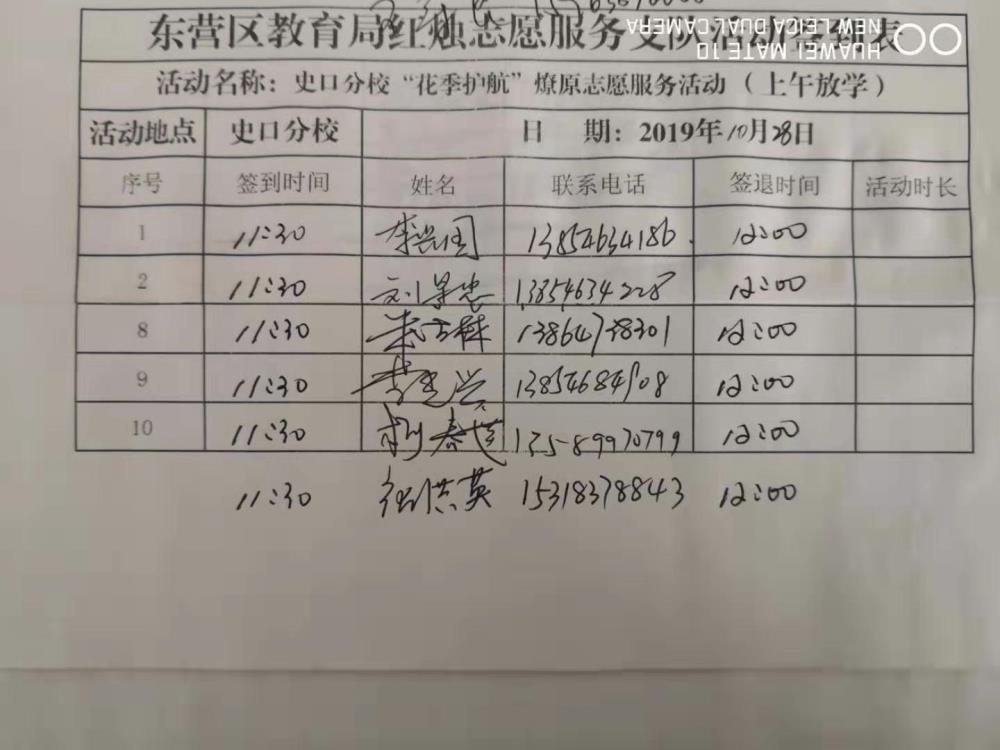 东营区教育局红烛志愿服务支队活动签到表
HUAWEI MATE 10
NEW LEICA DUAL CAMERA
活动名称：史口分校“花季护航”燎原志愿服务活动（上午放学）
活动地点 史口分校 日 期：2019年10月28日
序号 签到时间 姓名 联系电话 签退时间 活动时长
1 11:30 李兴国 13854634186 12:00
2 11:30 刘景忠 13854634228 12:00
8 11:30 13864738301 12:00
9 11:30 李建兴 13854684908 12:00
10 11:30 13589970799 12:00
11:30 张洪英 15318378843 12:00